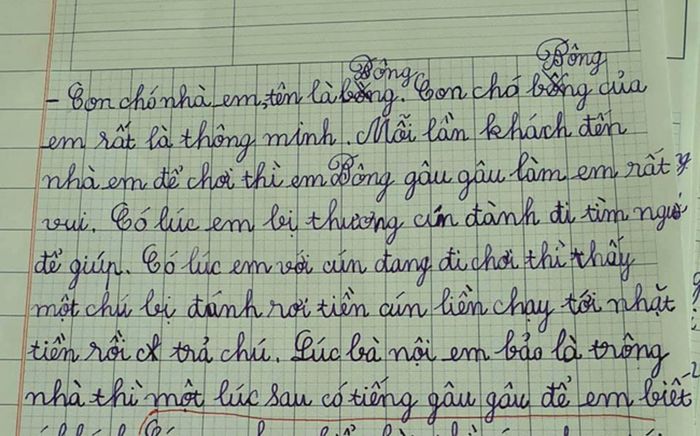 Bông Bông
- Con chó nhà em, tên là bông. Con chó bống của
em rất là thông minh. Mỗi lần khách đến
nhà em để chơi thì em Bông gâu gâu làm em rất
vui. Có lúc em bị thương cún đành đi tìm người
để giúp. Có lúc em với cún đang đi chơi thì thấy
một chú bị đánh rơi tiền cún liền chạy tới nhặt
tiền rồi trả chú. Lúc bà nội em bảo là trông
nhà thì một lúc sau có tiếng gâu gâu để em biết